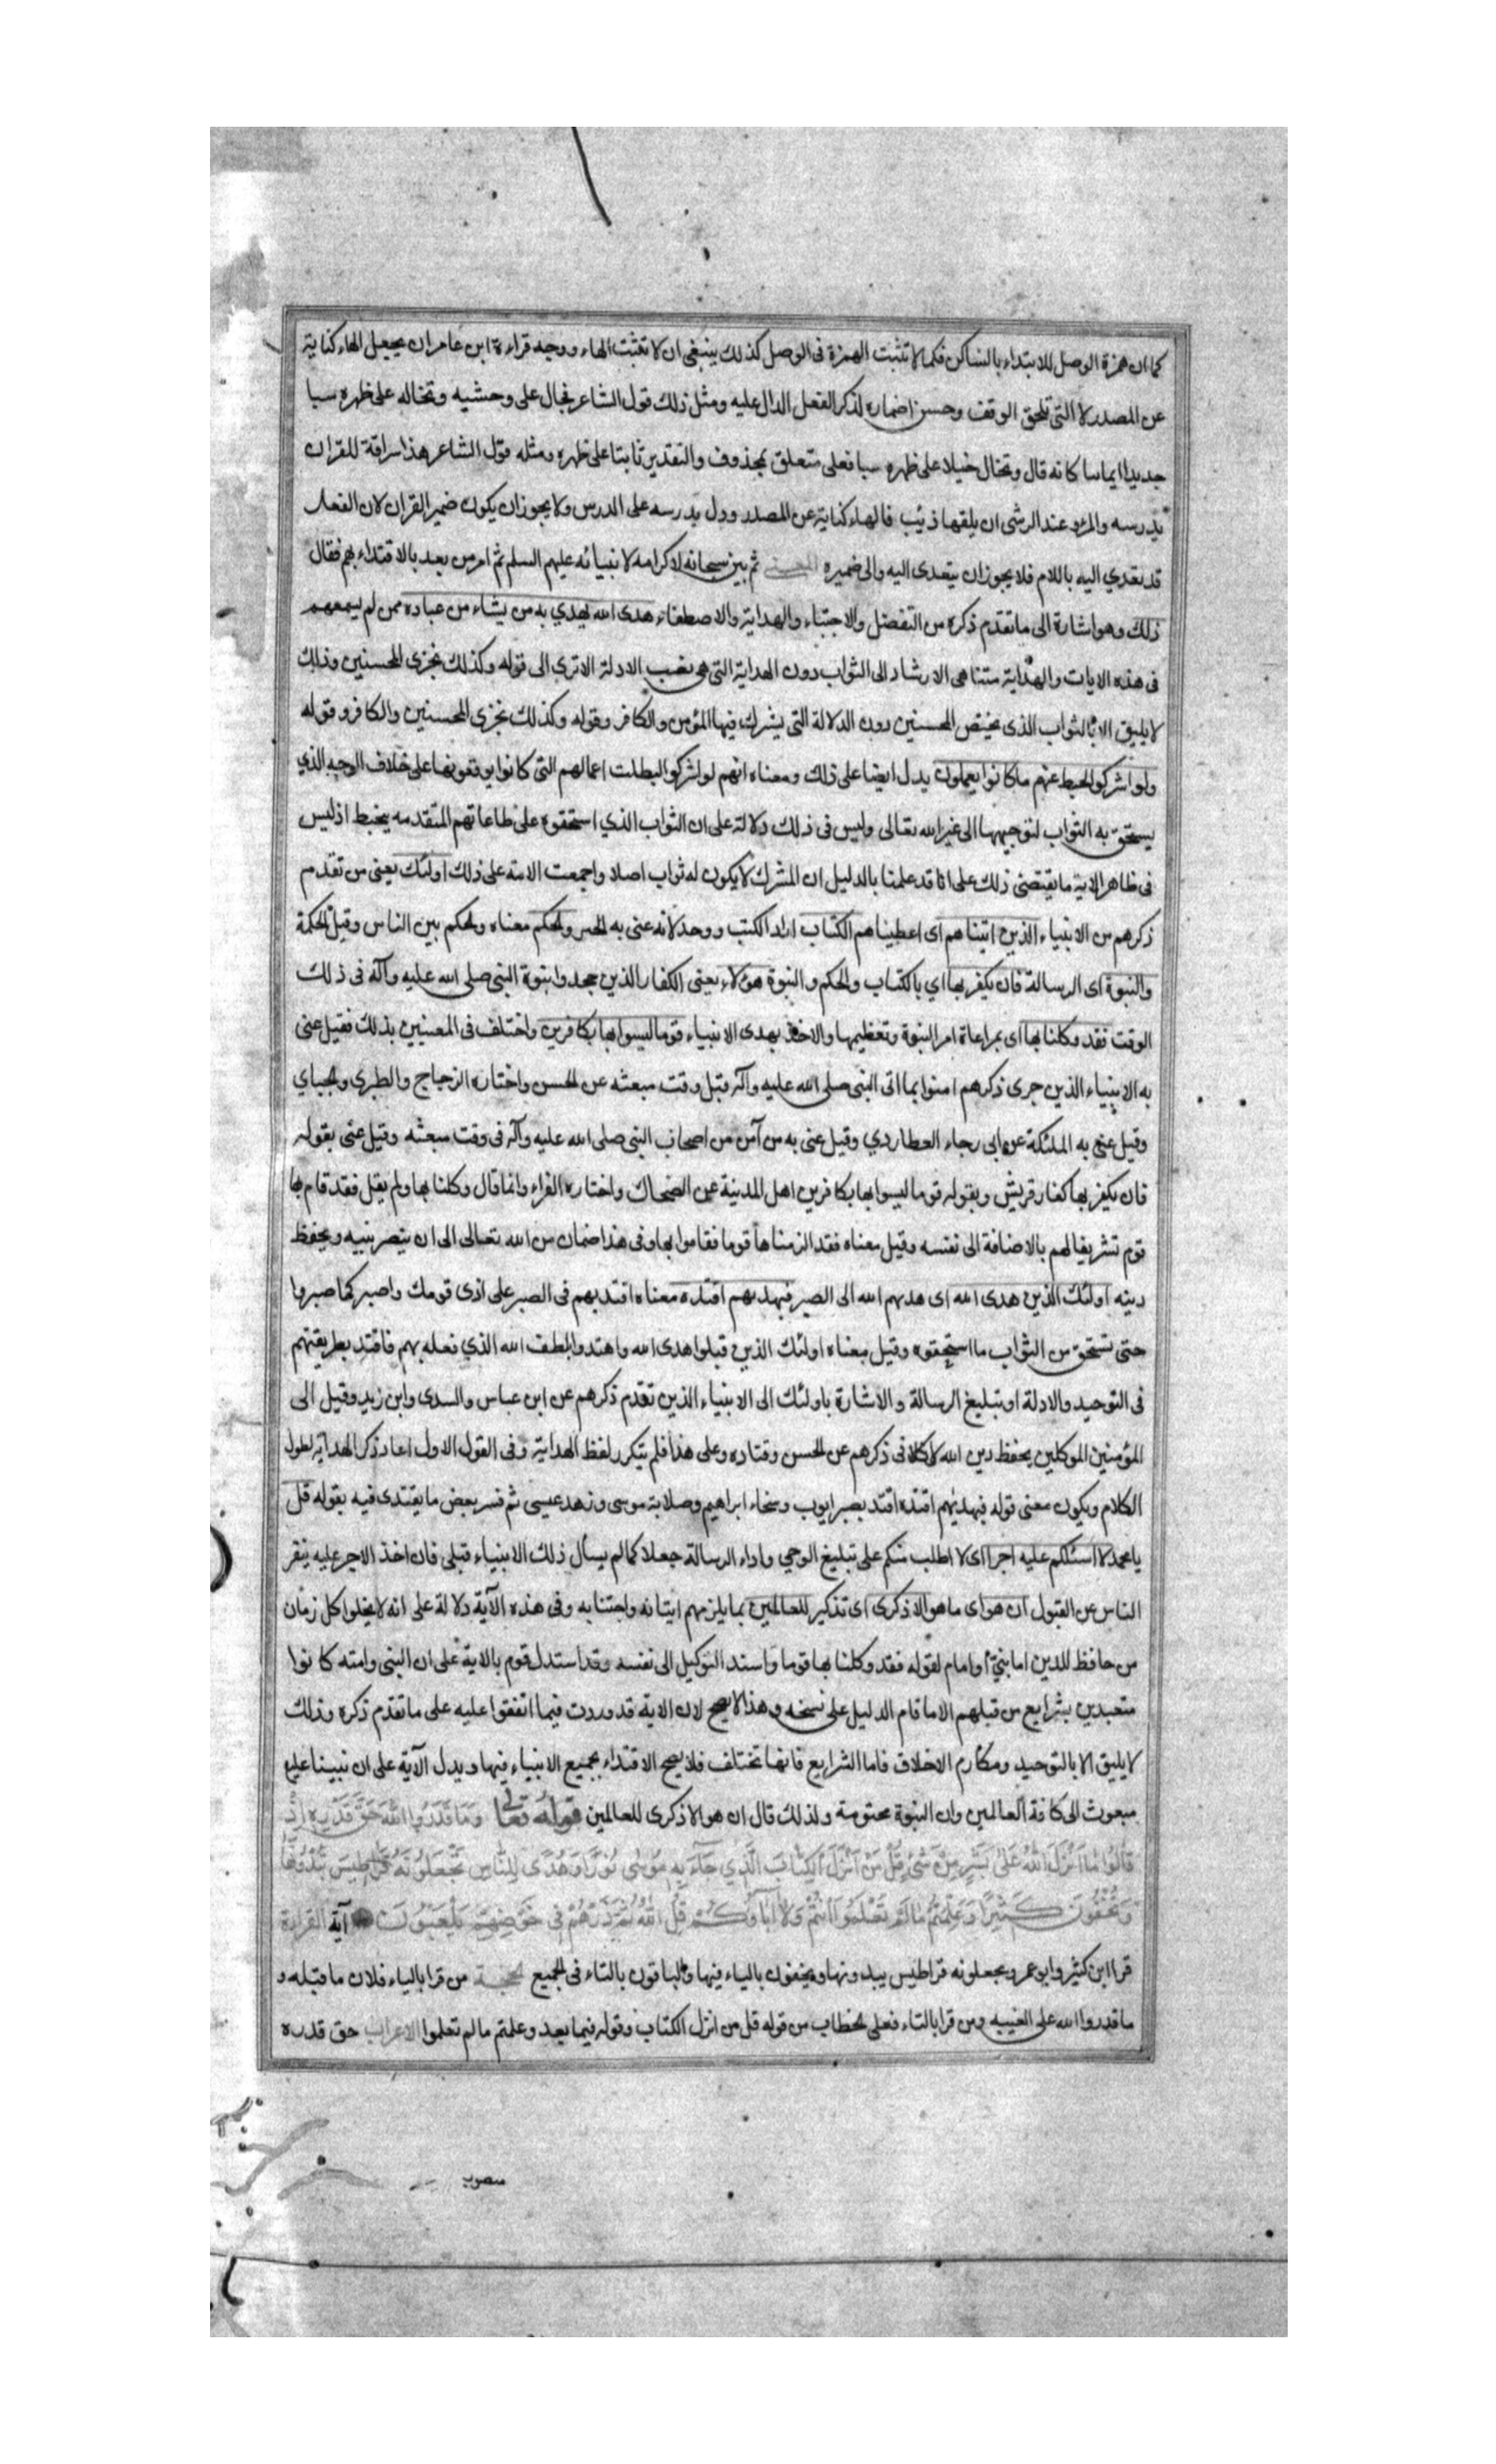 كما ان همزة الوصل للابتداء بالساكن فكما لا تثبت الهمزة فى الوصل كذلك ينبغى ان لا تثبت الهاء ووجه قراءة ابن عامر ان يجعل الهاء كناية
عن المصدر لا التى تلحق الوقف وحسن اضماره لذكر الفعل الدال عليه ومثل ذلك قول الشاعر فجال على وحشيه وتخاله على ظهره سبا
جديدا ايمانيا كانه قال وتخال خيلا على ظهره سبا فعلى متعلق بمحذوف والتقدير ثابتا على ظهره ومثله قول الشاعر هذا سراقة للقران
يدرسه والمرء عند الرشى ان يلقها ذئب فالهاء كناية عن المصدر ودل يدرسه على الدرس ولا يجوز ان يكون ضمير القران لان الفعل
قد تعدي اليه باللام فلا يجوز ان يتعدى اليه والى ضميره المعنى ثم بين سبحانه لاكرامه لانبيائه عليهم السلم ثم امر من بعد بالاقتداء بهم فقال
ذلك وهو اشارة الى ما تقدم ذكره من التفضل والاجتباء والهداية والاصطفاء هدى الله يهدي به من يشاء من عباده ممن لم يسمعهم
فى هذه الايات والهداية متناهى الارشاد الى الثواب دون الهداية التى هى نصب الادلة الاترى الى قوله وكذلك نجزى المحسنين وذلك
لا يليق الا بالثواب الذى يختص المحسنين دون الدلالة التى يشرك فيها المؤمن والكافر وقوله وكذلك نجزى المحسنين والكافر وقوله
ولو اشركوا لحبط عنهم ما كانوا يعملون يدل ايضا على ذلك ومعناه انهم لو اشركوا لبطلت اعمالهم التى كانوا يوقعونها على خلاف الوجه الذي
يستحق به الثواب لتوجيهها الى غير الله تعالى وليس فى ذلك دلالة على ان الثواب الذي استحقوه على طاعاتهم المتقدمه يحبط اذ ليس
فى ظاهر الاية ما يقتضى ذلك على انا قد علمنا بالدليل ان المشرك لا يكون له ثواب اصلا واجمعت الامة على ذلك اولئك يعنى من تقدم
ذكرهم من الانبياء الذين اتيناهم اى اعطيناهم الكتاب اراد الكتب ووحد لانه عنى به الجنس والحكم معناه والحكم بين الناس وقيل الحكمة
والنبوة اى الرسالة فان يكفر بها اي بالكتاب والحكم والنبوة هؤلاء يعنى الكفار الذين جحدوا بنبوة النبى صلى الله عليه وآله فى ذلك
الوقت فقد وكلنا بها اى بمراعاة امر النبوة وتعظيمها والاخذ بهدى الانبياء قوما ليسوا بها بكافرين واختلف فى المعنيين بذلك فقيل عنى
به الانبياء الذين جرى ذكرهم امنوا بما اتى النبى صلى الله عليه وآله قبل وقت مبعثه عن الحسن واختاره الزجاج والطبرى والجباي
وقيل عنى به الملئكة عن ابى رجاء العطاردي وقيل عنى به من آمن من اصحاب النبى صلى الله عليه وآله فى وقت مبعثه وقيل عنى بقوله
فان يكفر بها كفار قريش وبقوله قوما ليسوا بها بكافرين اهل المدينة عن الضحاك واختاره الفراء وانما قال وكلنا بها ولم يقل فقد قام بها
قوم تشريفا لهم بالاضافة الى نفسه وقيل معناه فقد الزمناها قوما فقاموا بها وفى هذا ضمان من الله تعالى الى ان ينصر نبيه ويحفظ
دينه اولئك الذين هدى الله اى هديهم الله الى الصبر فبهديهم اقتده معناه اقتد بهم فى الصبر على اذى قومك واصبر كما صبروا
حتى تستحق من الثواب ما استحقوه وقيل معناه اولئك الذين قبلوا هدى الله واهتدوا بلطف الله الذي فعله بهم فاقتد بطريقتهم
فى التوحيد والادلة او تبليغ الرسالة والاشارة باولئك الى الانبياء الذين تقدم ذكرهم عن ابن عباس والسدى وابن زيد وقيل الى
المؤمنين الموكلين بحفظ دين الله فى ذكرهم عن الحسن وقتاده وعلى هذا فلم يتكرر لفظ الهداية وفى القول الاول اعاد ذكر الهداية لطول
الكلام ويكون معنى قوله فبهديهم اقتده اقتد بصبر ايوب وسخاء ابراهيم وصلابة موسى وزهد عيسى ثم فسر بعض ما يقتدى فيه بقوله قل
يا محمد لا اسئلكم عليه اجرا اى لا اطلب منكم على تبليغ الوحي واداء الرسالة جعلا كما لم يسأل ذلك الانبياء قبلى فان اخذ الاجر عليه ينفر
الناس عن القبول ان هو اى ما هو الا ذكرى اى تذكير للعالمين بما يلزمهم ايتانه واجتنابه وفى هذه الآية دلالة على انه لا يخلوا كل زمان
من حافظ للدين اما نبى او امام لقوله فقد وكلنا بها قوما واسند التوكيل الى نفسه وقد استدل قوم بالاية على ان النبى وامته كانوا
متعبدين بشرايع من قبلهم الا ما قام الدليل على نسخه وهذا لا يصح لان الاية قد وردت فيما اتفقوا عليه على ما تقدم ذكره وذلك
لا يليق الا بالتوحيد ومكارم الاخلاق فاما الشرايع فانها تختلف فلا يصح الاقتداء بجميع الانبياء فيها ويدل الآية على ان نبينا عليه
مبعوث الى كافة العالمين وان النبوة مختومة ولذلك قال ان هو الا ذكرى للعالمين قوله تعالى وَمَا قَدَرُوا اللهَ حَقَّ قَدْرِهِ اِذْ
قَالُوا مَا اَنْزَلَ اللهُ عَلَى بَشَرٍ مِنْ شَىْءٍ قُلْ مَنْ اَنْزَلَ الْكِتَابَ الَّذِي جَاءَ بِهِ مُوسٰى نُورًا وَهُدًى لِلنَّاسِ تَجْعَلُونَهُ قَرَاطِيسَ تُبْدُونَهَا
وَتُخْفُونَ كَثِيرًا وَعُلِّمْتُمْ مَا لَمْ تَعْلَمُوا اَنْتُمْ وَلَا آبَاؤُكُمْ قُلِ اللهُ ثُمَّ ذَرْهُمْ فِى خَوْضِهِمْ يَلْعَبُونَ آية القراءة
قرا ابن كثير وابو عمرو يجعلونه قراطيس يبدونها ويخفون بالياء فيها والباقون بالتاء فى الجميع الحجة من قرا بالياء فلان ما قبله و
ما قدروا الله على الغيبه ومن قرا بالتاء فعلى الخطاب من قوله قل من انزل الكتاب وقوله فيما بعد وعلمتم ما لم تعلموا الاعراب حق قدره
منصوب